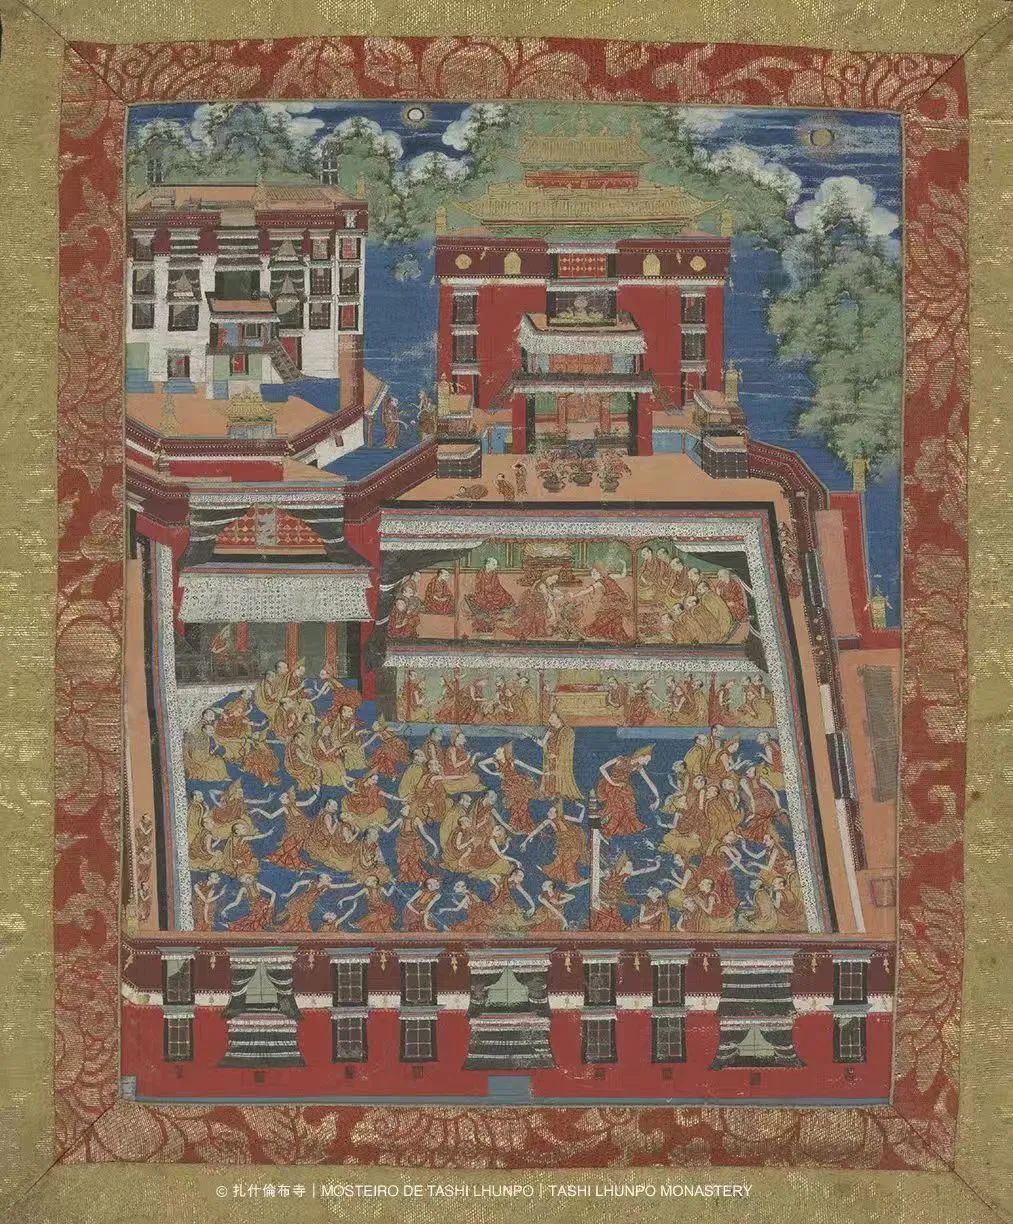 © 扎什倫布寺｜MOSTEIRO DE TASHI LHUNPO｜TASHI LHUNPO MONASTERY